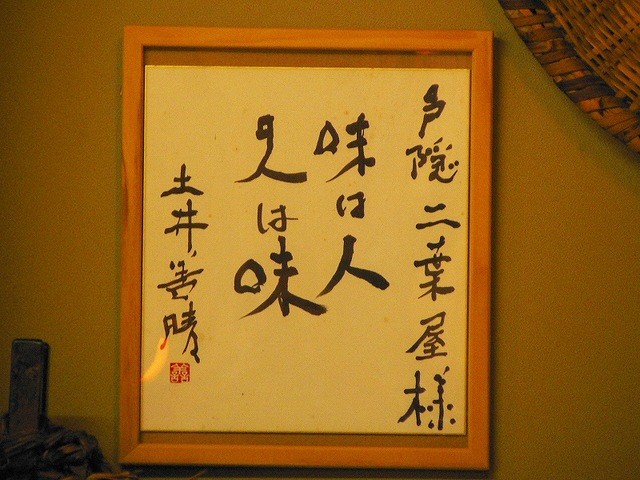 戸隠二葉屋様
味は人
人は味
土井善晴